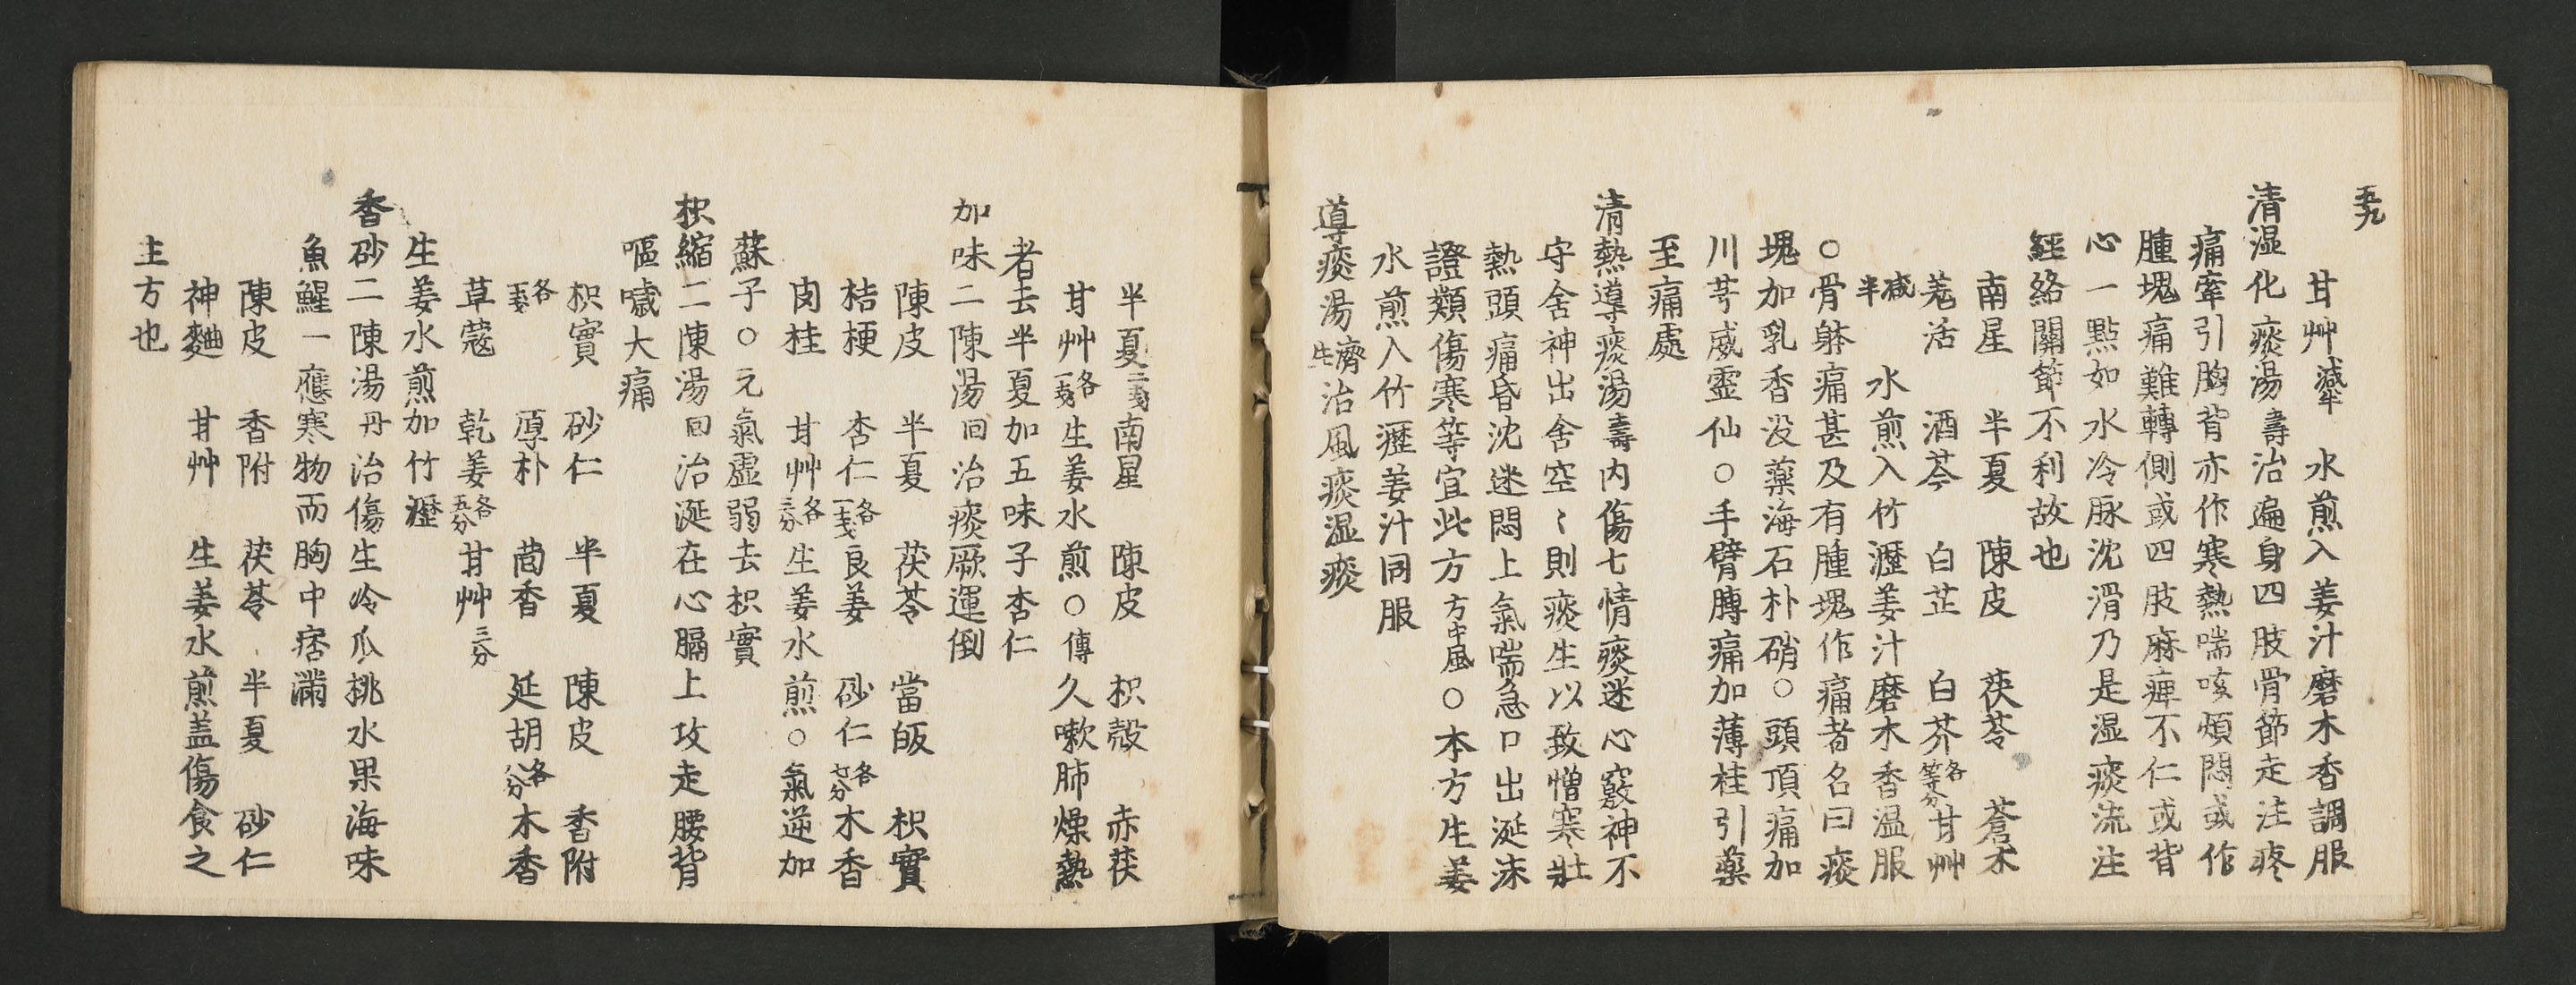 五九
甘艸減半 水煎入姜汁磨木香調服
清湿化痰湯壽治遍身四肢骨節走注疼
痛牽引胸背亦作寒熱喘咳煩悶或作
腫塊痛難轉側或四肢麻痺不仁或背
心一點如水冷脉沈滑乃是湿痰流注
經絡關節不利故也
南星 半夏 陳皮 茯苓 蒼朮
羌活 酒芩 白芷 白芥各等分甘艸
減半 水煎入竹瀝姜汁磨木香温服
○骨體痛甚及有腫塊作痛者名曰痰
塊加乳香没藥海石朴硝○頭頂痛加
川芎威靈仙○手臂膊痛加薄桂引藥
至痛處
清熱導痰湯壽内傷七情痰迷心竅神不
守舍神出舍空〻則痰生以致憎寒壯
熱頭痛昏沈迷悶上氣喘急口出涎沫
證類傷寒等宜此方方中風○本方生姜
水煎入竹瀝姜汁同服
導痰湯濟生治風痰湿痰
半夏二戋南星 陳皮 枳殼 赤茯
甘艸各一戋生姜水煎○傳久嗽肺燥熱
者去半夏加五味子杏仁
加味二陳湯回治痰厥運倒
陳皮 半夏 茯苓 當皈 枳實
桔梗 杏仁各一戋良姜 砂仁各七分木香
肉桂 甘艸各三分生姜水煎○氣逆加
蘇子○元氣虛弱去枳實
枳縮二陳湯回治涎在心膈上攻走腰背
嘔噦大痛
枳實 砂仁 半夏 陳皮 香附
各一戋 厚朴 茴香 延胡各八分木香
草蔻 乾姜各五分甘艸三分
生姜水煎加竹瀝
香砂二陳湯丹治傷生冷瓜桃水果海味
魚鯹一應寒物而胸中痞滿
陳皮 香附 茯苓 半夏 砂仁
神麯 甘艸 生姜水煎盖傷食之
主方也